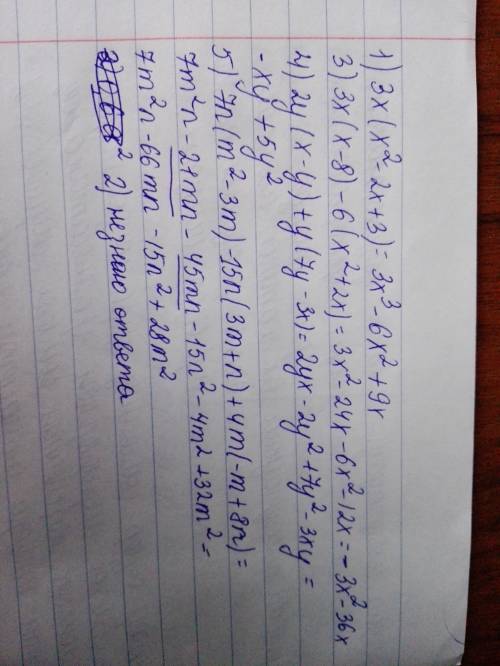 1) 3x(x²-2x+3)=3x³-6x²+9x
3) 3x(x-8)-6(x²+2x)=3x²-24x-6x²-12x=-3x²-36x
4) 2y(x-y)+y(7y-3x)=2yx-2y²+7y²-3xy=
-xy+5y²
5) 7n(m²-3m)-15n(3m+n)+4m(-m+8n)=
7m²n-21mn-45mn-15n²-4m²+32m²=
7m²n-66mn-15n²+28m²
2) не знаю ответа